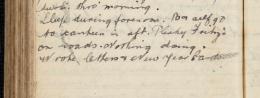 thro' morning.
Sleep during forenoon. Boa self go
to canteen in aft. Pesky Fritz's
on roads. Nothing doing.
Wrote letters & New Year Cards